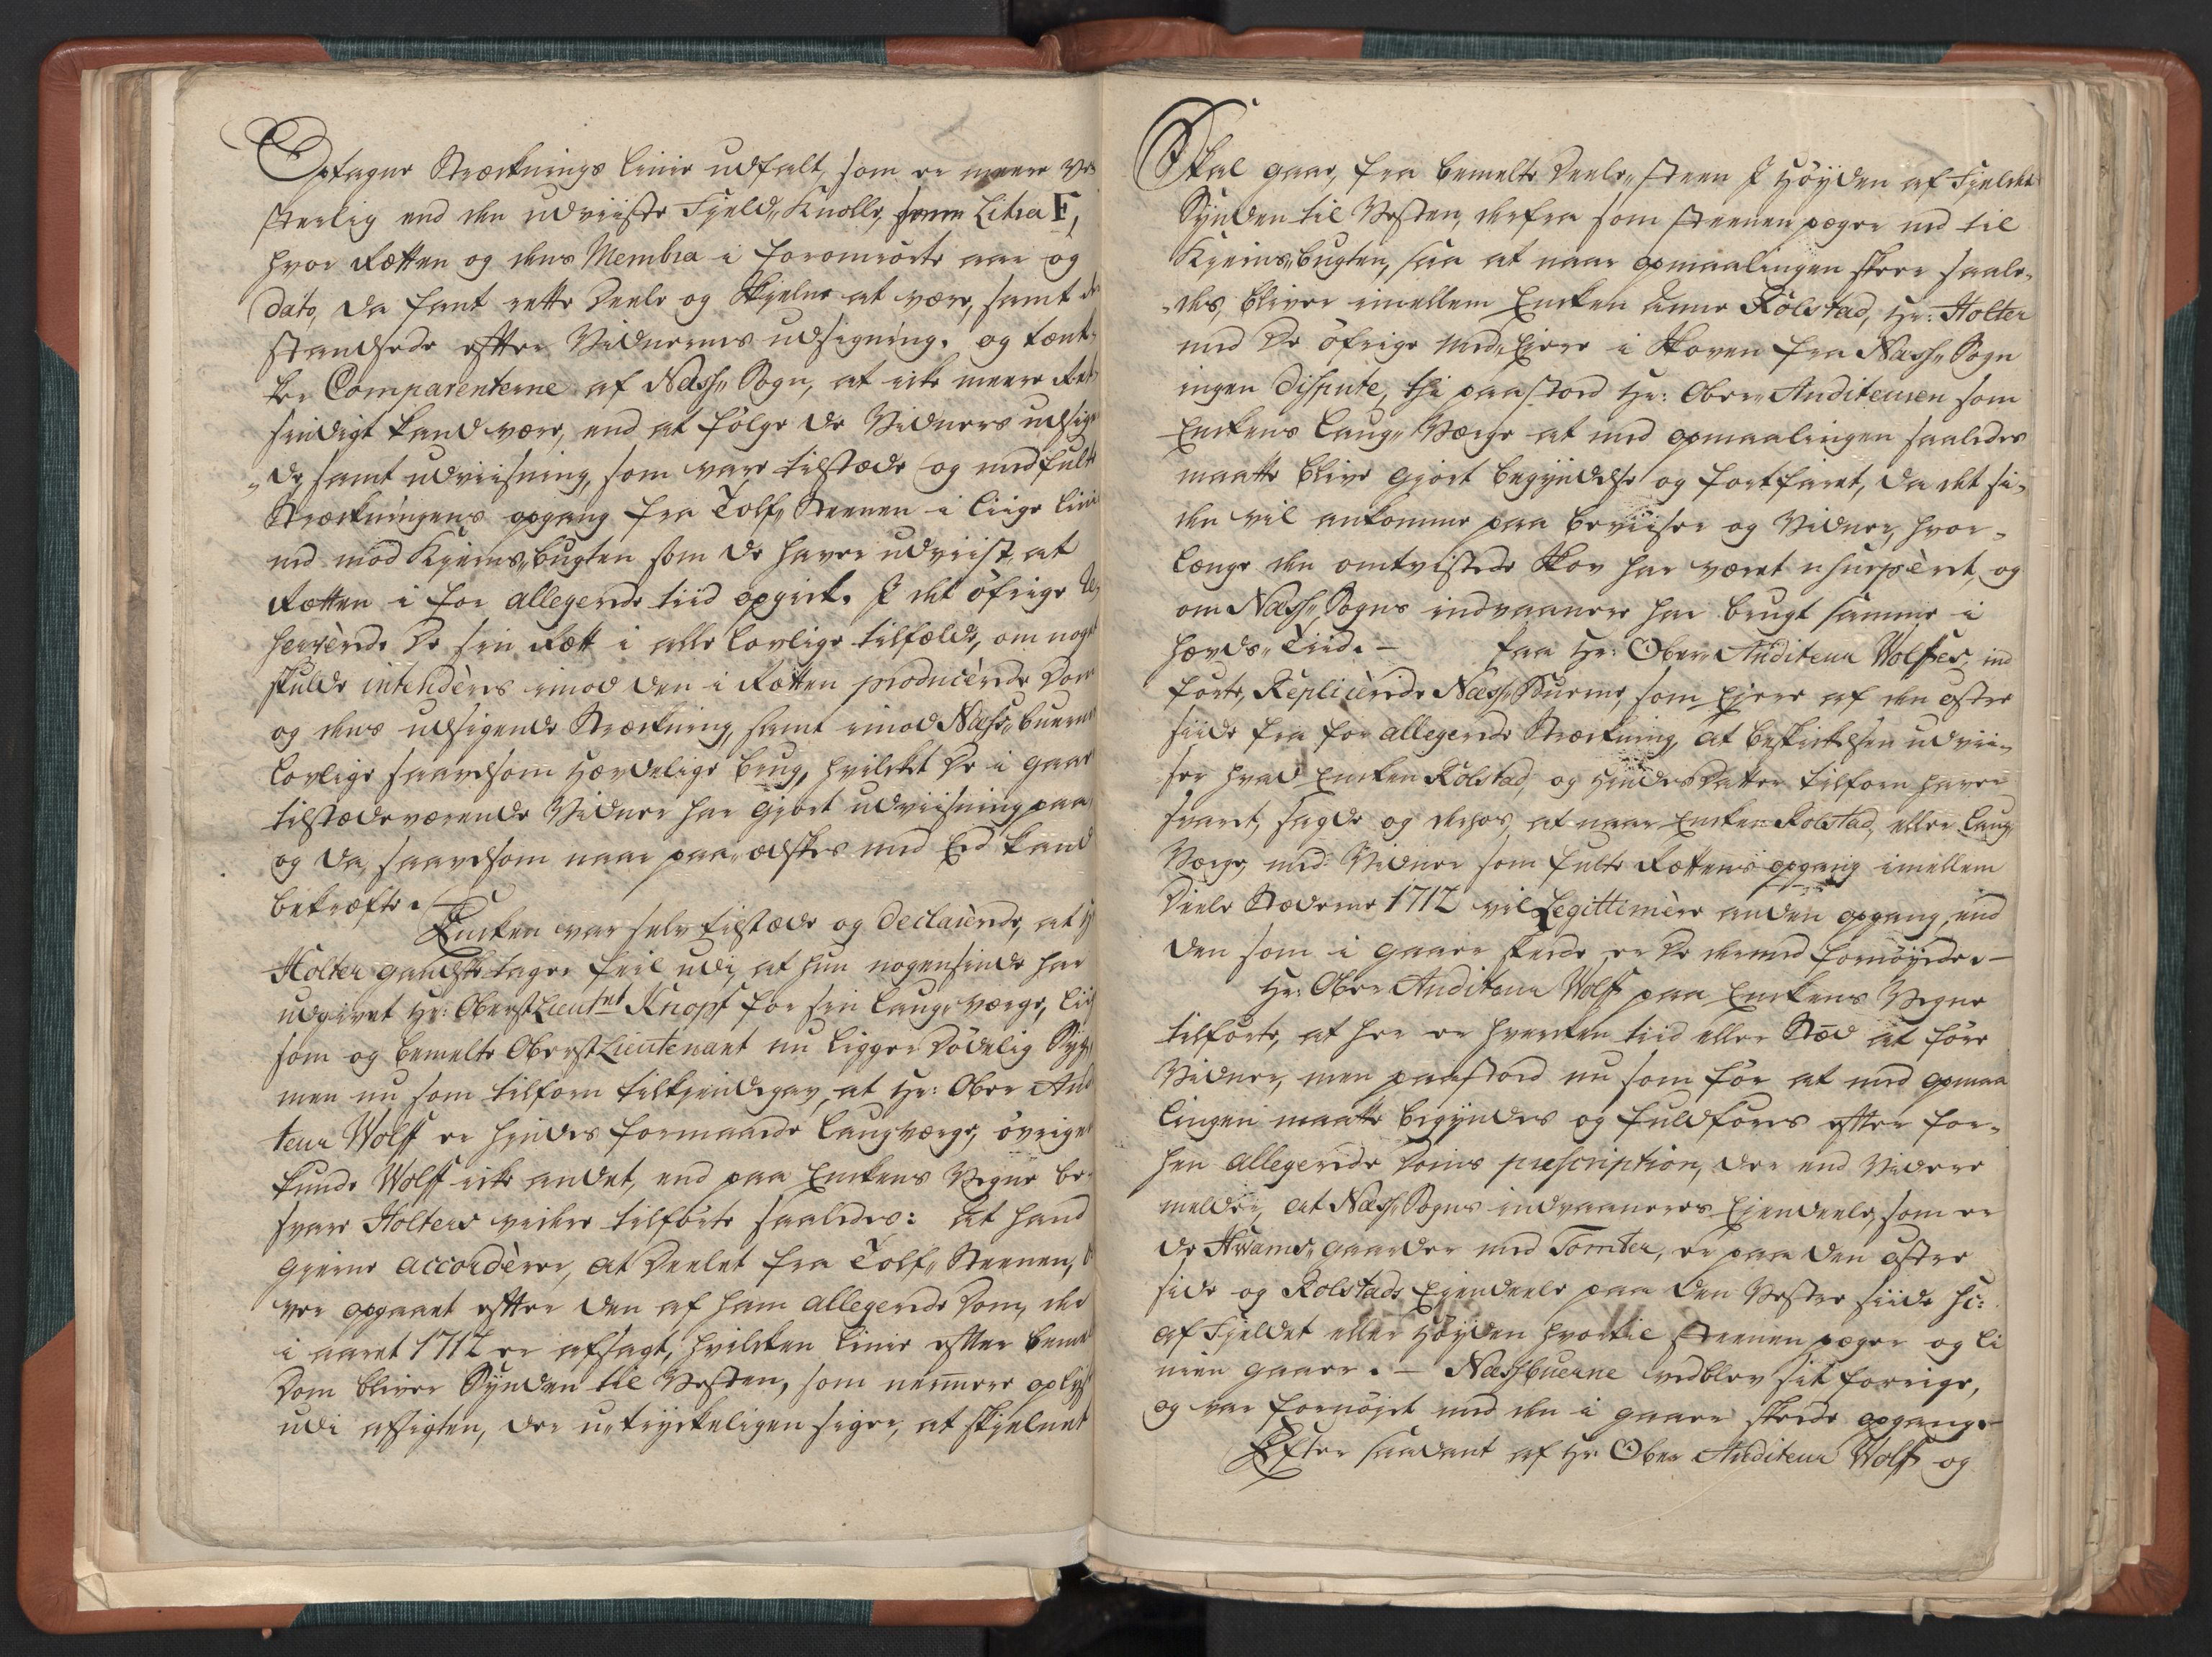 Optagne Stræknings Linie udfalt, som er meere ve
sterlig end den udviiste Field„Knolle, Litra F,
hvor Rætten og dens Membra i foromrørte aar og
dato, da fant rette Deele og Skielne at være, samt de
standsede efter Vidnernes udsigning. og tænk-
ker Comparenterne af Næss„Sogn, at icke meere Ret-
sindigt kand være, end at følge de Vidners udsig-
„de samt udviisning, som vare tilstæde og med fulte
Stræckningens opgang fra Tolf„Steenen i liige Linie
ned mod Kierns„bugten som de haver udviist, at
Rætten i for allegerede tiid opgick. I det øfrige Re-
serverede De sin Rætt i alle lovlige tilfælde, om noget
skulde intenderes imod den i Rætten producerede Dom
og dens udsigende Stræckning, samt imod Næss„buernes
lovlige saavelsom Hævdelige brug, hvilcket De i gaar
tilstædeværende Vidner har giort udviisning paa,
og da, saavelsom naar paa„æskes med Eed kand
bekræfte.
Encken var selv tilstæde og declarerede, at Hr
Holter gandske tager feil udi, at hun nogensinde har
udgivet Hr: OberstLieutnt Knopf for sin laugeværge, lii
som og bemelte OberstLieutenant nu ligger dødelig Syg,
men nu som tilforn tilkiendegav, at Hr: Ober Audi
teur Wolff er hendes formaaede laugværge, øvrigens
kunde Wolff icke andet, end paa Enckens Vegne be-
svare Holters videre tilførte saaledes: At hand
gierne accorderer, at Deelet fra Tolf„Steenen, b
ver opgaaet efter den af ham allegerede Dom, der
i aaret 1712 er afsagt, hvilcken Linie efter bemel
Dom bliver Synden til Vesten, som nermere oplyses
udi afsigten, der u„tryckeligen siger, at Skielnet
Skal gaar, fra bemelte Deele„steen I Høyden af Fieldet
Synden til Vesten, derfra som Steenen peger ned til
Kierns„bugten, saa at naar opmaalingen skeer saale-
„des, bliver imellem Encken Anne Rolstad, Hr: Holter
med De øfrige Med„Eiere i Skoven fra Næss„Sogn
ingen dispute, thi paastod Hr: Ober„Auditeuren som
Enckens Laug„Værge at med opmaalingen saaledes
maatte blive giort begyndelse og fortfaret, da det si-
den vil ankomme paa beviiser og Vidner, hvor-
længe den omtvistede Skov har været usurperet, og
om Næss„Sogns indvaanere har brugt samme i
Hævds„Tiid. – Paa Hr: Ober„Auditeur Wolffes, ind
førte, Replicerede Næss„Buerne, som Eiere af den østre
siide fra for allegerede Stræckning, at beskickelsen udvii-
ser hvad Encken Rolstad, og hendes Datter tilforn haver
svaret, sagde og derhos, at naar Encken Rolstad, eller Laug
Værge, med Vidner som fulte Rættens opgang imellem
Deele Stæderne 1712 vil Legittimere anden opgang, end
den som i gaar skede, er De dermed fornøyede. –
Hr: Ober Auditeur Wolff paa Enckens Vegne
tilførte, at her er hvercken tiid eller Stæd at føre
Vidner, men paastod nu som før at med opmaa
lingen maatte begyndes og fuldføres efter for-
hen allegerede Doms præscription, der end Videre
melder, at Næss„Sogns indvaaneres Eiendeele, som er
de Hvams„gaarder med Tomter, er paa den østre
side og Rolstads Eiendeele paa den Vestre siide hi:
af Fieldet eller Høyden hvortil Steenen peger og Li
nien gaaer. – Næssbuerne vedblev sit forrige,
og var fornøyet med den i gaar skede opgang. –
Efter saadant af Hr: Ober Auditeur Wolff og